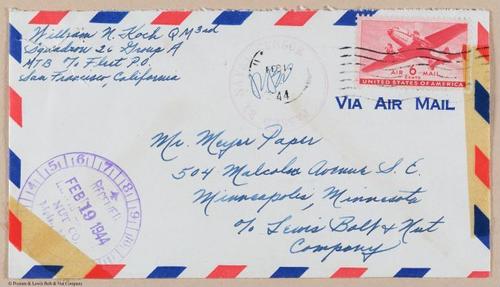 William N. Koch QM 3rd
Squadron 26 Group A
MTB c/o Fleet P.O.
San Francisco, California
AIR 6 MAIL
CENTS
UNITED STATES OF AMERICA
44
VIA AIR MAIL
Mr. Meyer Paper
504 Malcolm Avenue S.E.
Minneapolis, Minnesota
c/o Lewis Bolt & Nut
Company
4 5 6 7 8 9 10
RECEIVED
FEB 19 1944
NUT CO.
© Premier & Lewis Bolt & Nut Company